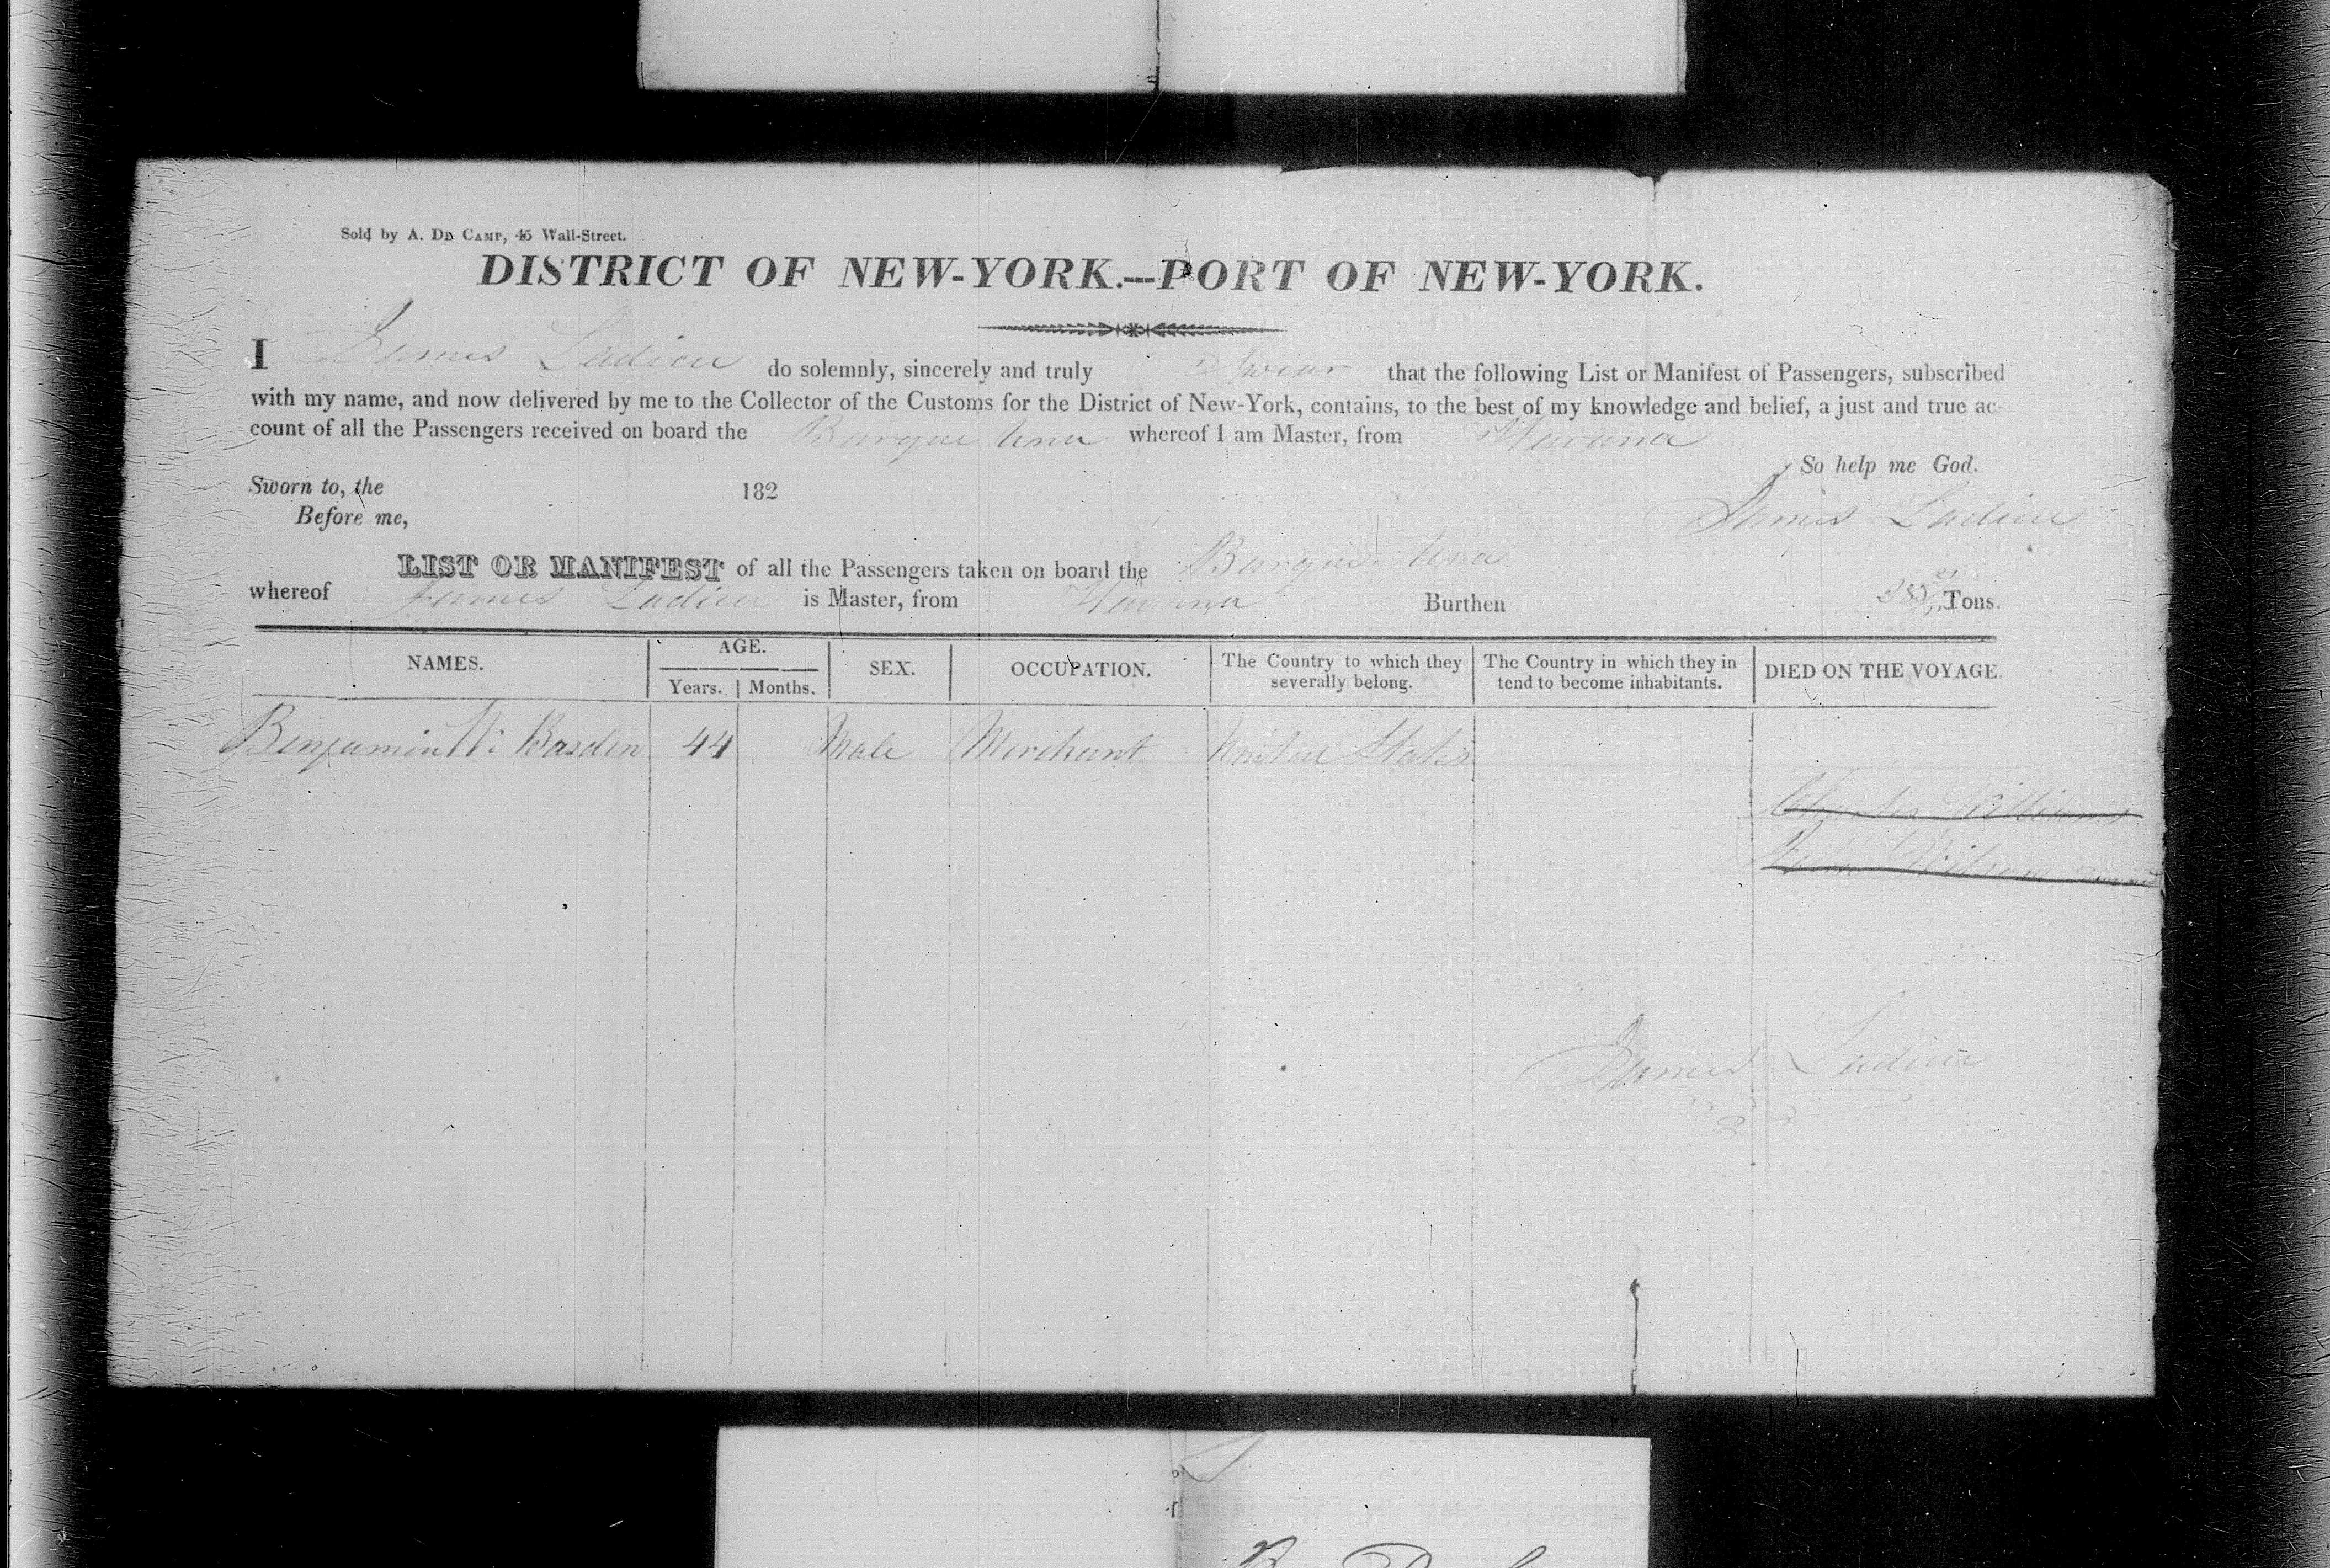 Sold by A. DE CAMP, 45 Wall-Street.
DISTRICT OF NEW-YORK.--PORT OF NEW-YORK.
I James Ladieu do solemnly, sincerely and truly Swear that the following List or Manifest of Passengers, subscribed
with my name, and now delivered by me to the Collector of the Customs for the District of New-York, contains, to the best of my knowledge and belief, a just and true ac-
count of all the Passengers received on board the Barque Una whereof I am Master, from Havana
So help me God.
Sworn to, the 182
James Ladieu
Before me,
LIST OR MANIFEST of all the Passengers taken on board the Barque Una
whereof James Ladieu is Master, from Havana Burthen Tons.
NAMES. AGE. SEX. OCCUPATION. The Country to which they severally belong. The Country in which they in tend to become inhabitants. DIED ON THE VOYAGE.
Years. Months.
Benjamin W. Basden 44 Male Merchant United States
Charles Williams
Wilson
James Ladieu